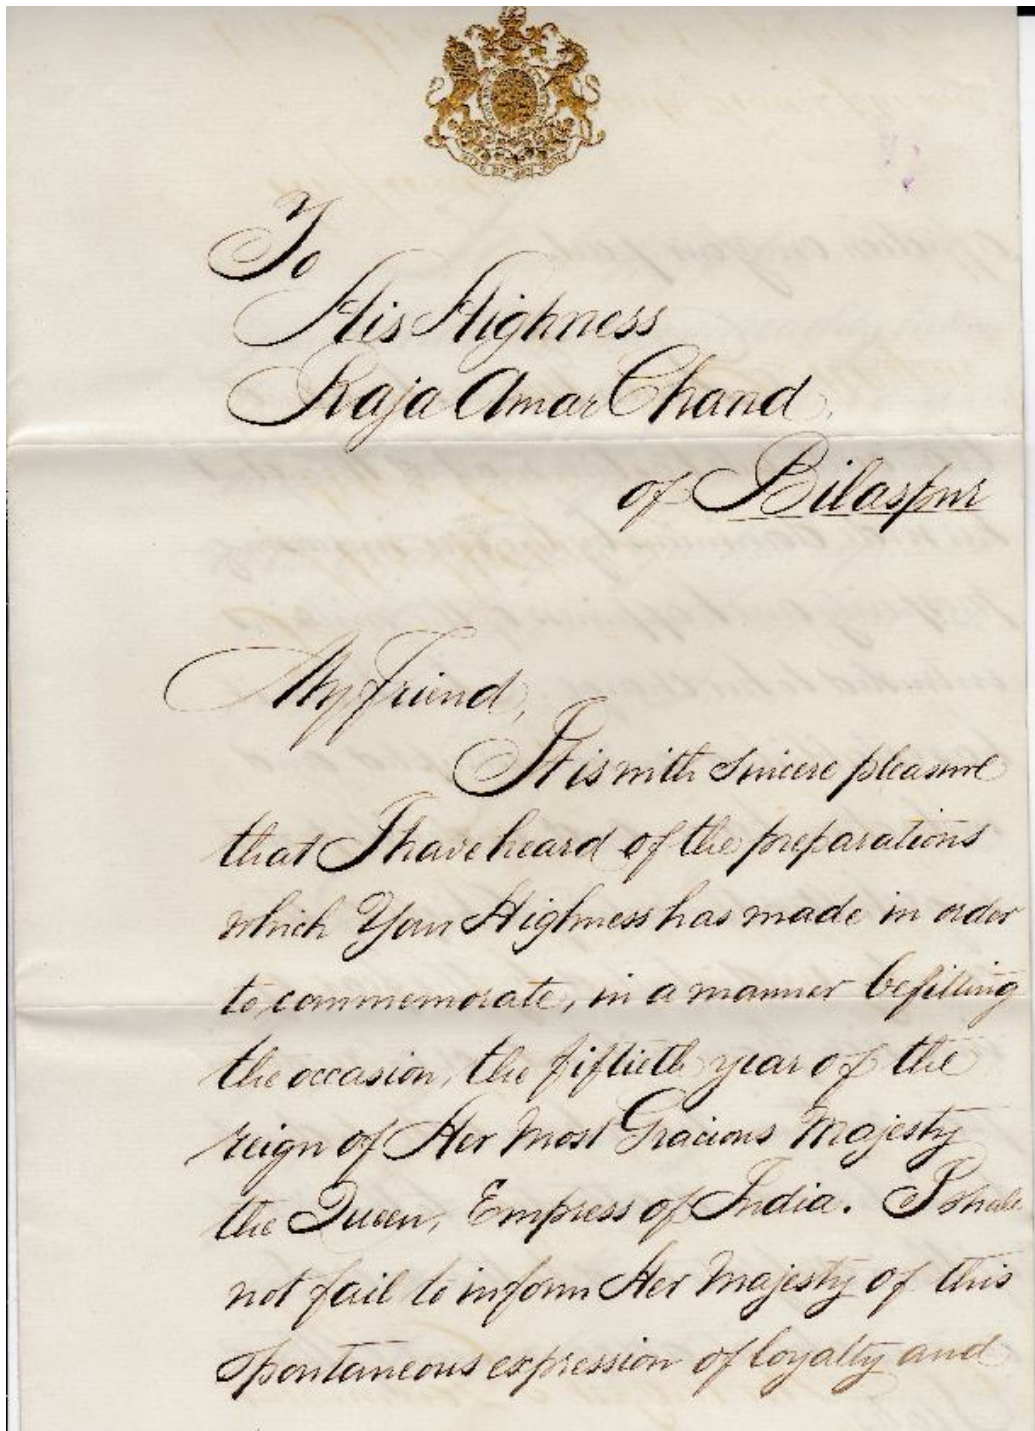 To
His Highness
Raja Amar Chand,
of Bilaspur
My friend,
It is with sincere pleasure
that I have heard of the preparations
which Your Highness has made in order
to commemorate, in a manner befitting
the occasion, the fiftieth year of the
reign of Her Most Gracious Majesty
the Queen, Empress of India. I shall
not fail to inform Her Majesty of this
spontaneous expression of loyalty and